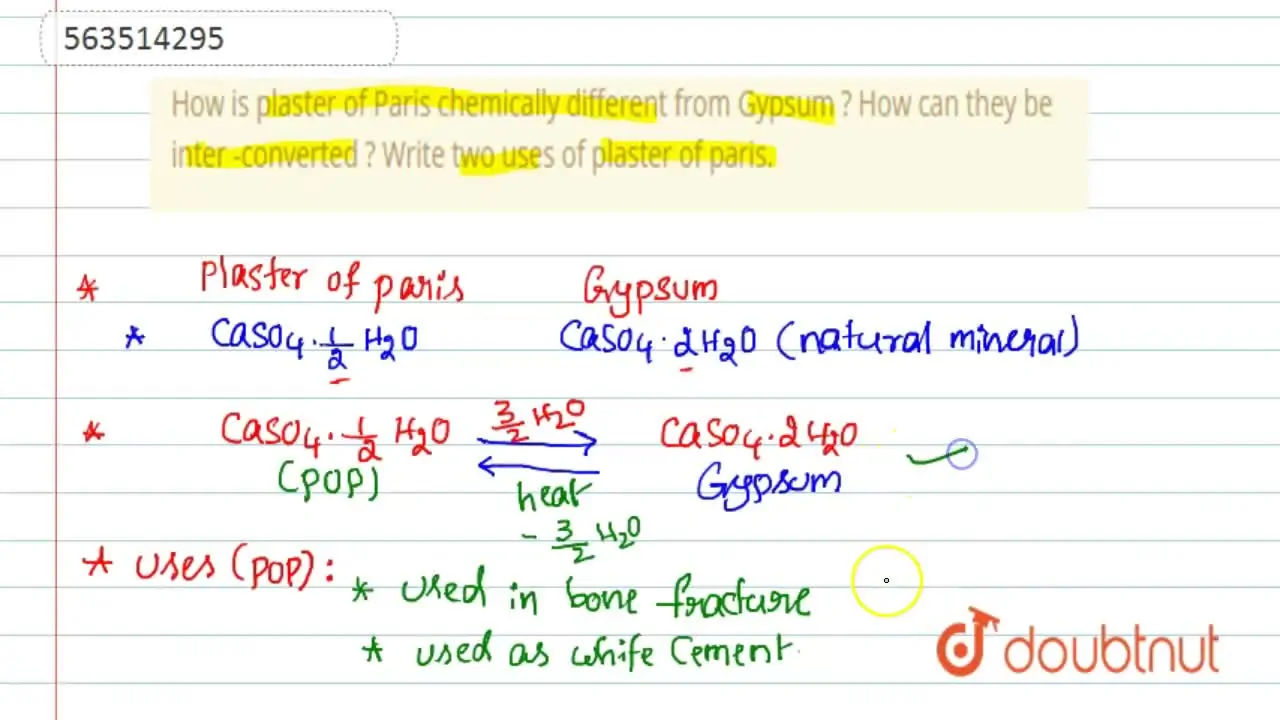 563514295
How is plaster of Paris chemically different from Gypsum ? How can they be
inter -converted ? Write two uses of plaster of paris.
* Plaster of paris Gypsum
* CaSO4.1/2 H2O CaSO4.2H2O (natural mineral)
* CaSO4.1/2 H2O 3/2 H2O CaSO4.2H2O
(POP) heat Gypsum
- 3/2 H2O
* uses (POP):
* used in bone fracture
* used as white cement.
doubtnut